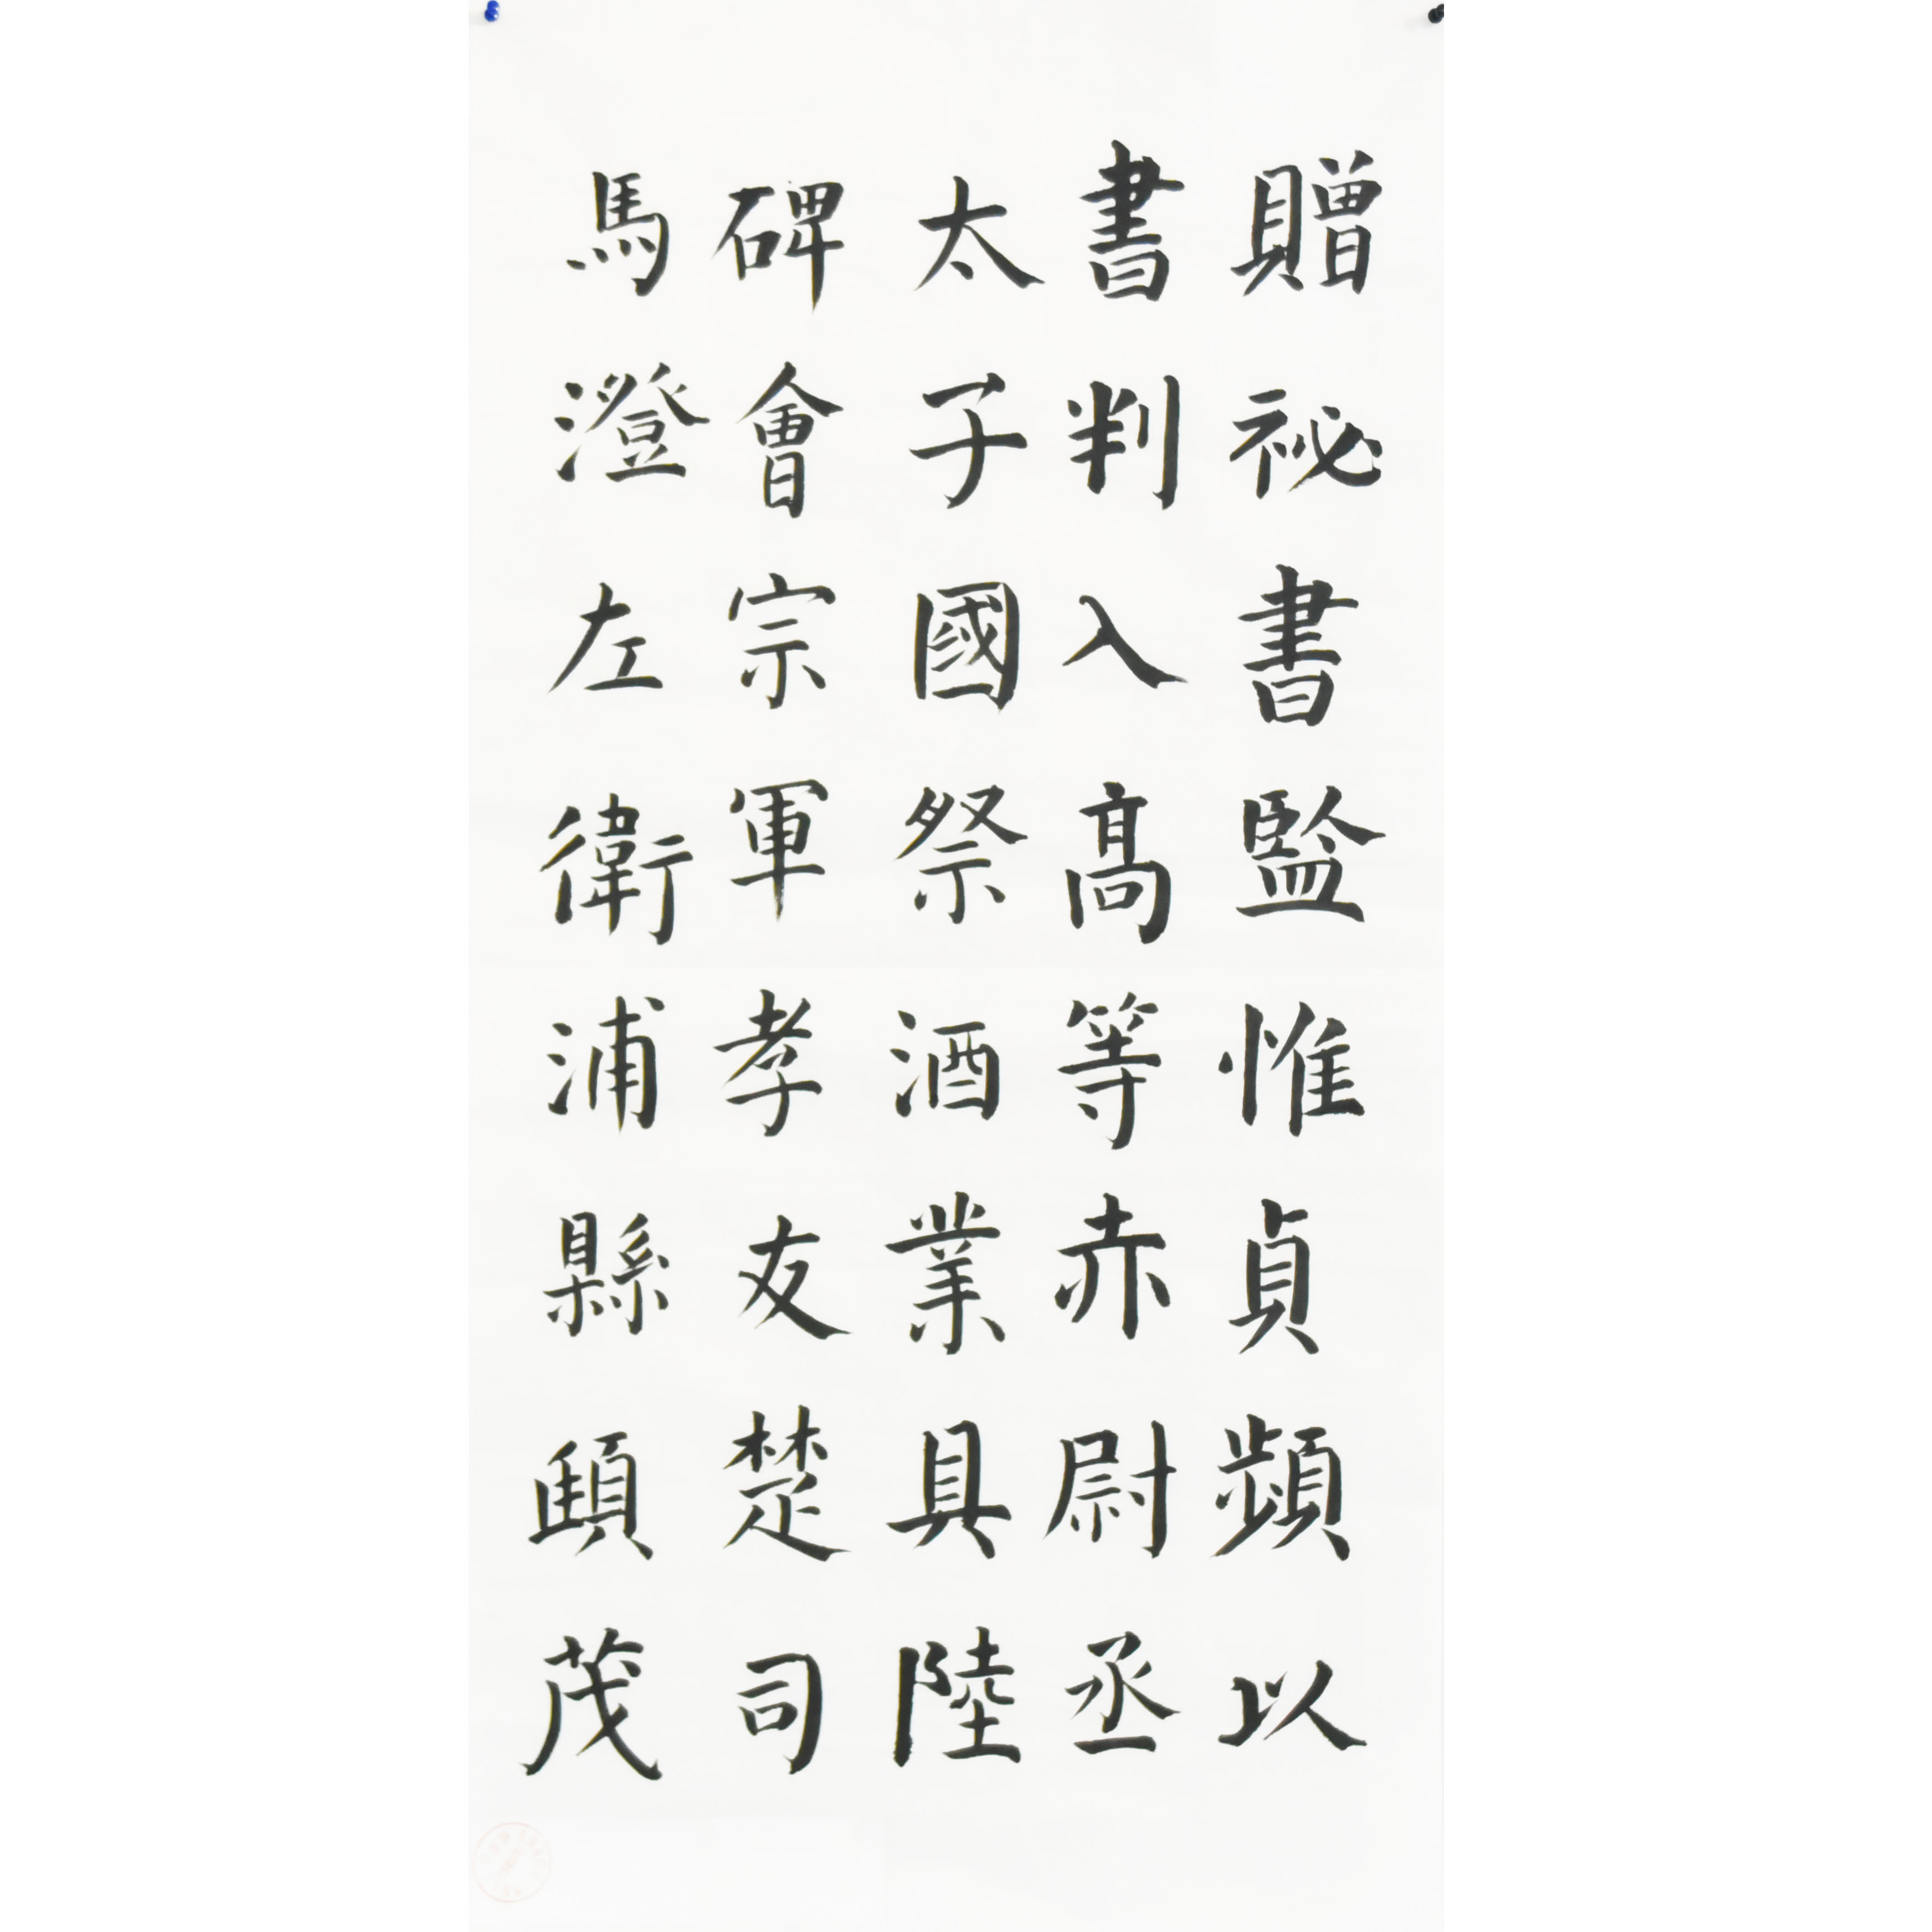 贈祕書監惟貞頻以
書判入高等赤尉丞
太子國祭酒業具陸
碑會宗軍孝友楚司
馬澄左衛浦縣頤茂